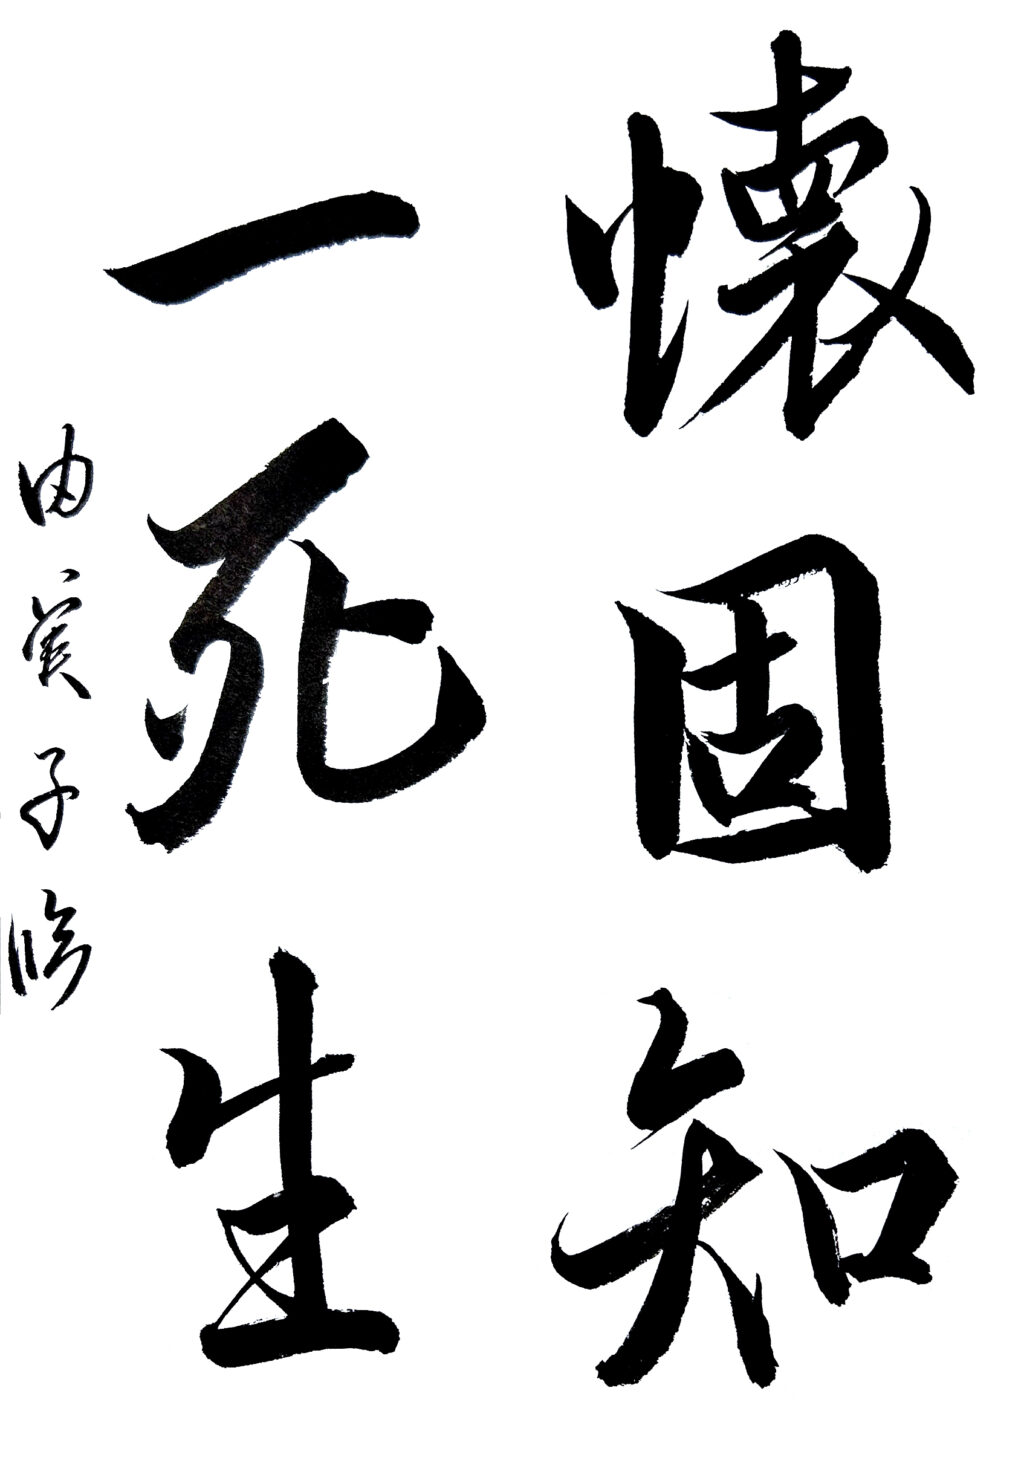 懐固知
一死生
由実子臨